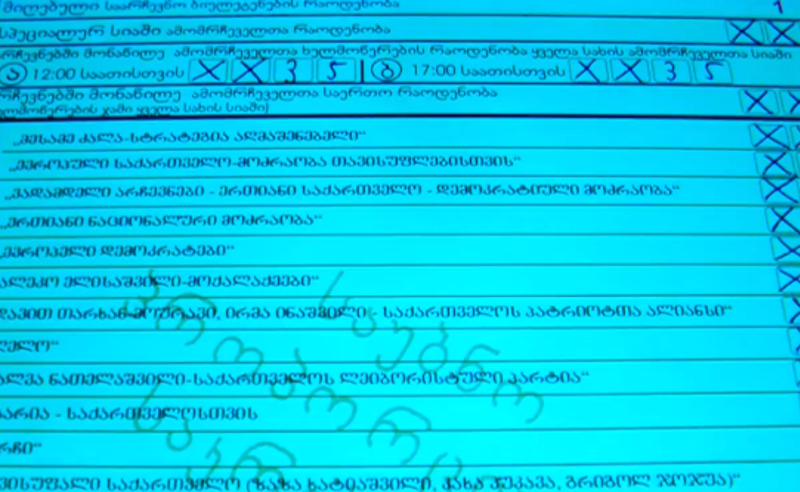 მიღებული საარჩევნო ბიულეტენების რაოდენობა 1
სპეციალურ სიაში ამომრჩეველთა რაოდენობა X X
არჩევნებში მონაწილე ამომრჩეველთა ხელმოწერების რაოდენობა ყველა სახის ამომრჩეველთა სიაში
ა 12:00 საათისთვის X X 3 5 ბ 17:00 საათისთვის X X 3 5
არჩევნებში მონაწილე ამომრჩეველთა საერთო რაოდენობა X
ხელმოწერების ჯამი ყველა სახის სიაში)
„მესამე ძალა-სტრატეგია აღმაშენებელი“ X
„ევროპული საქართველო-მოძრაობა თავისუფლებისთვის“ X
„ვადამდელი არჩევნები - ერთიანი საქართველო - დემოკრატიული მოძრაობა“ X
„ერთიანი ნაციონალური მოძრაობა“ X
„ევროპელი დემოკრატები“ X
ალეკო ელისაშვილი-მოქალაქეები“ X
დავით თარხან-მოურავი, ირმა ინაშვილი - საქართველოს პატრიოტთა ალიანსი“
ლელო“
შალვა ნათელაშვილი-საქართველოს ლეიბორისტული პარტია“
- საქართველოსთვის
თავისუფალი საქართველო (ზაზა ხატიაშვილი, კახა კუკავა, გრიგოლ
საუბნო